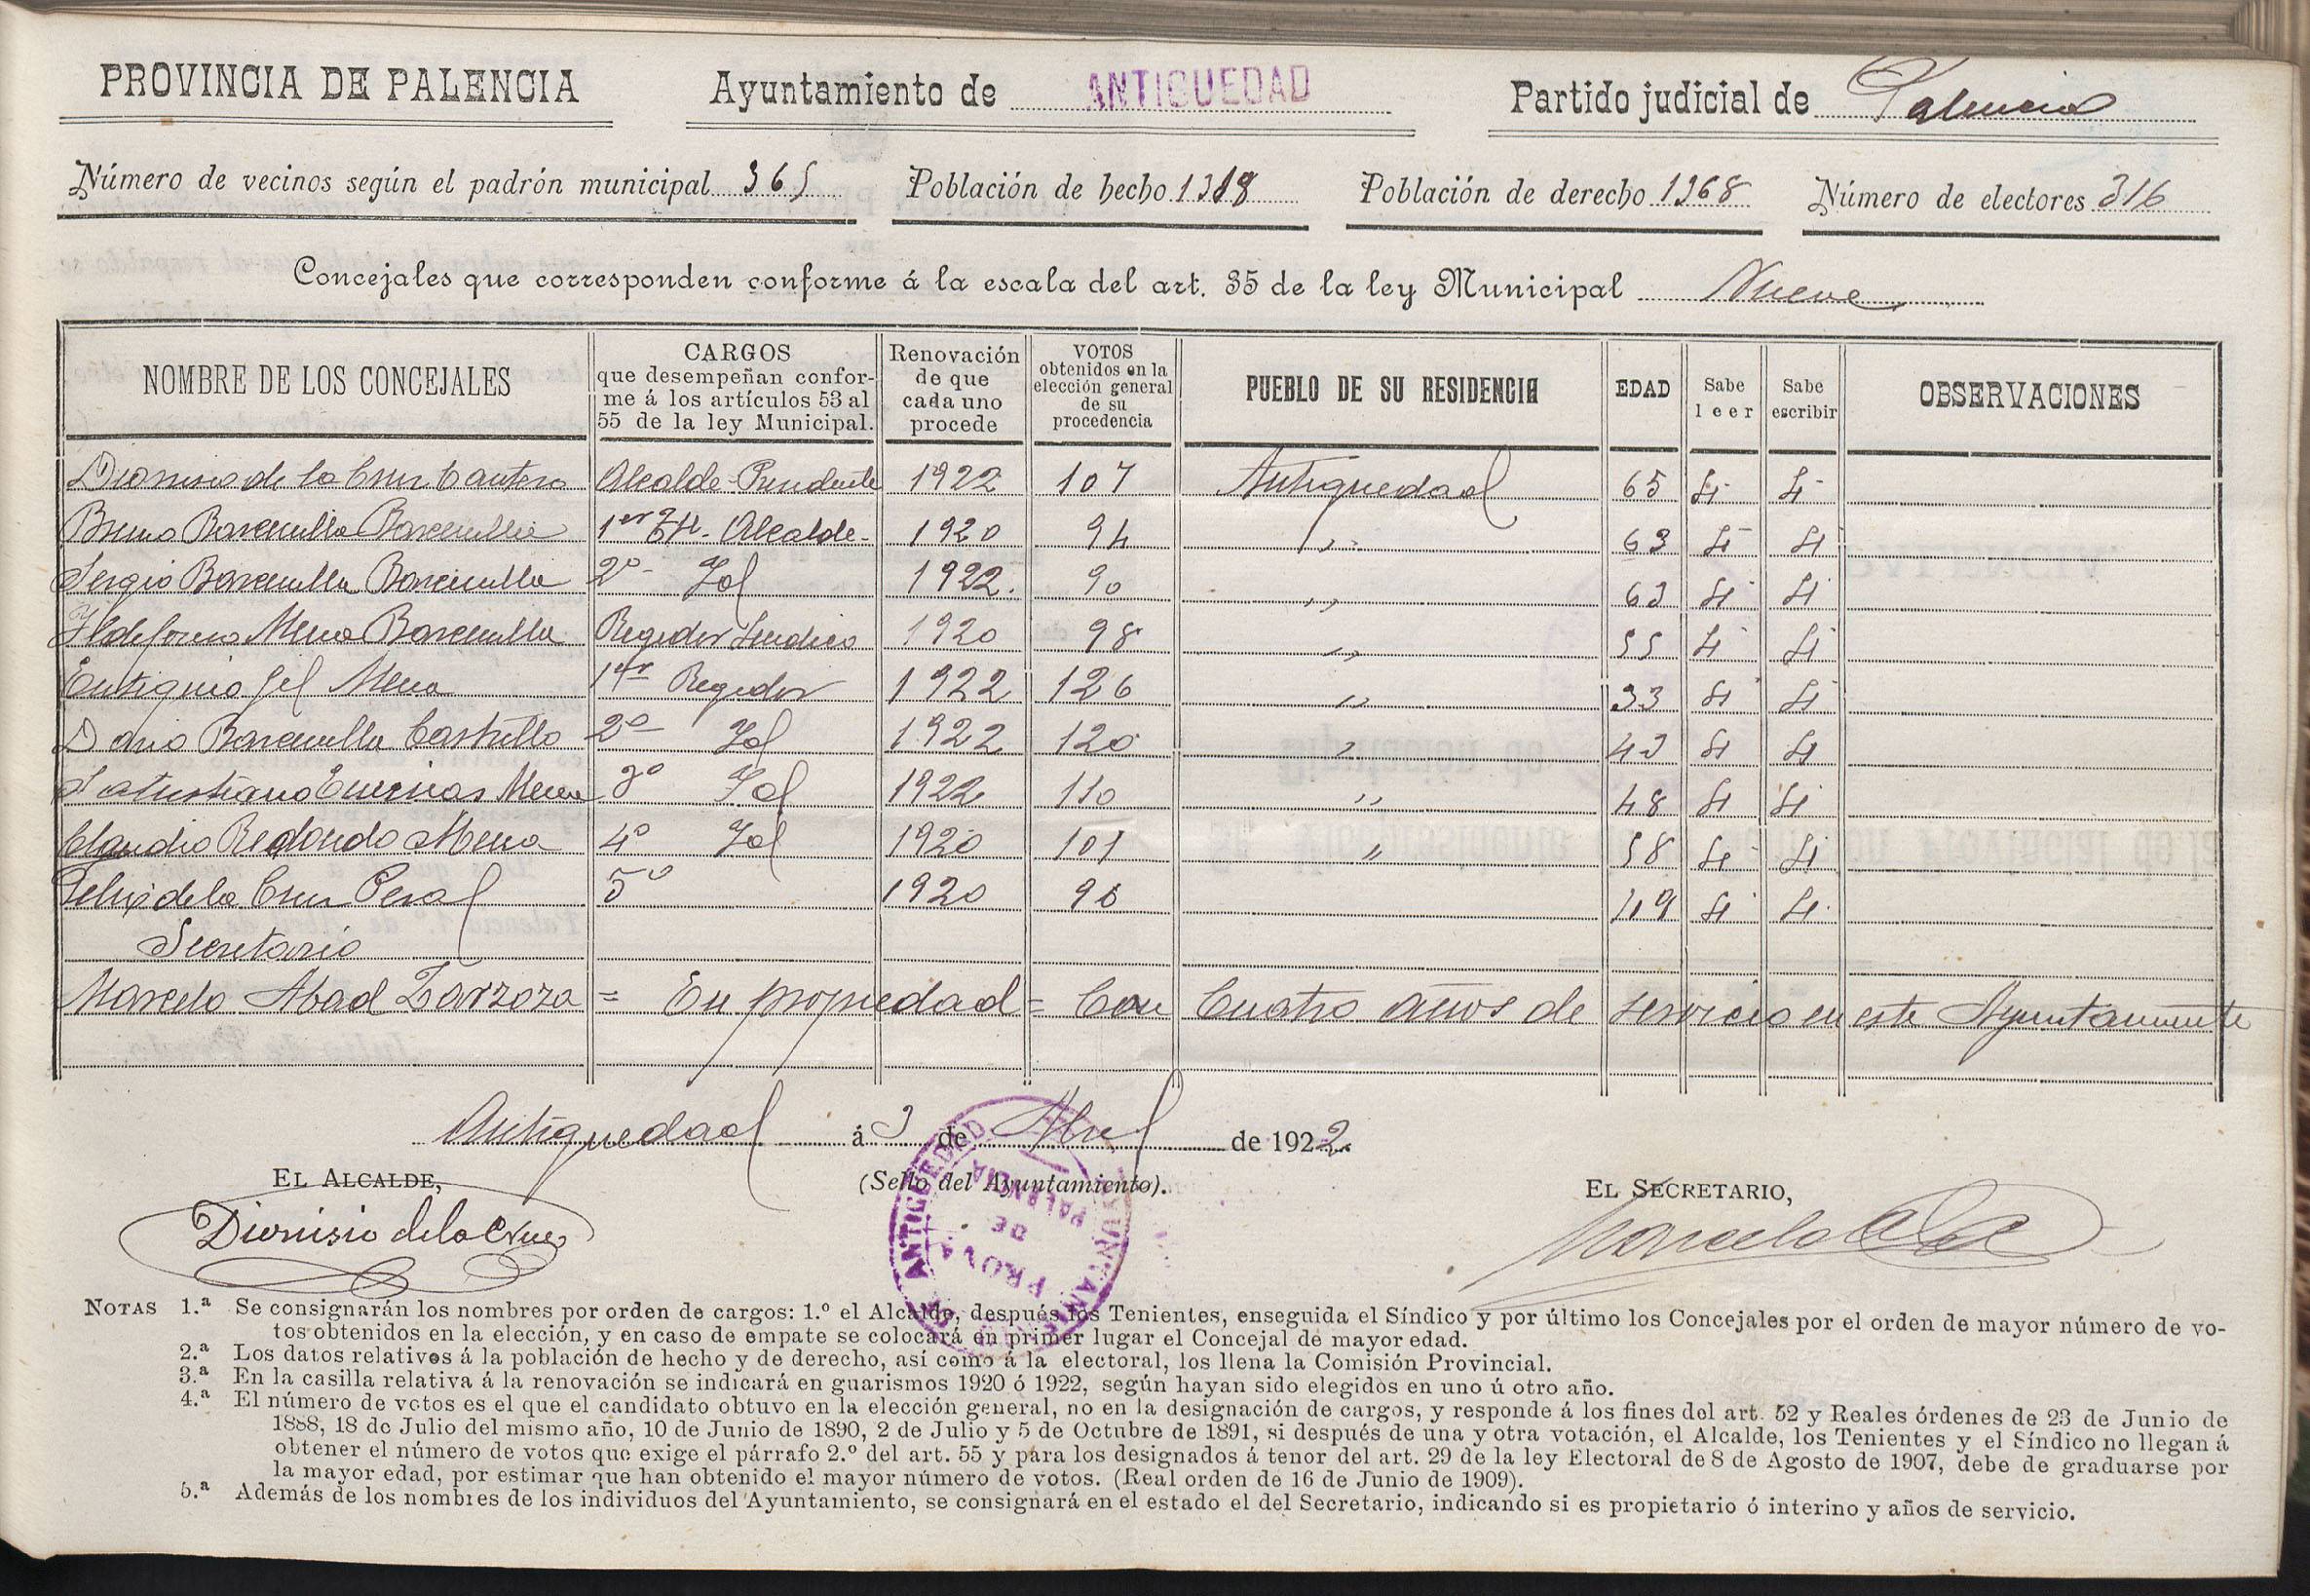 PROVINCIA DE PALENCIA Ayuntamiento de ANTIGUEDAD Partido judicial de Palencia
Número de vecinos según el padrón municipal 365 Población de hecho 1318 Población de derecho 1368 Número de electores 316
Concejales que corresponden conforme á la escala del art. 35 de la ley Municipal Nueve
NOMBRE DE LOS CONCEJALES CARGOS que desempeñan conforme á los artículos 53 al 55 de la ley Municipal. Renovación de que cada uno procede VOTOS obtenidos en la elección general de su procedencia PUEBLO DE SU RESIDENCIA EDAD Sabe leer Sabe escribir OBSERVACIONES
Dionisio de la Cruz Cantero Alcalde-Presidente 1922 107 Antiguedad 65 Si Si
Bruno Barcenilla Barcenilla 1er Tte. Alcalde 1920 94 ,, 63 Si Si
Sergio Barcenilla Barcenilla 2º Id 1922. 90 ,, 63 Si Si
Ildefonso Mena Barcenilla Regidor Sindico 1920 98 ,, 55 Si Si
Eutiquio Gil Mena 1er Regidor 1922 126 ,, 33 Si Si
Dario Barcenilla Castrillo 2º Id 1922 120 ,, 43 Si Si
Salustiano Encinas Mena 3º Id 1922 110 ,, 48 Si Si
Claudio Redondo Mena 4º Id 1920 101 ,, 58 Si Si
Felix de la Cruz Peral 5º 1920 96 49 Si Si
Secretario
Marcelo Abad Zarzoza = En propiedad = Con Cuatro años de servicio en este Ayuntamiento
Antiguedad á 3 de Abril de 1922.
EL ALCALDE, (Sello del Ayuntamiento). EL SECRETARIO,
Dionisio de la Cruz Marcelo Abad
ANTIGUEDAD PROVA DE PALENCIA
NOTAS 1.ª Se consignarán los nombres por orden de cargos: 1.º el Alcalde, después los Tenientes, enseguida el Síndico y por último los Concejales por el orden de mayor número de vo-
tos obtenidos en la elección, y en caso de empate se colocará en primer lugar el Concejal de mayor edad.
2.ª Los datos relativos á la población de hecho y de derecho, así como á la electoral, los llena la Comisión Provincial.
3.ª En la casilla relativa á la renovación se indicará en guarismos 1920 ó 1922, según hayan sido elegidos en uno ú otro año.
4.ª El número de votos es el que el candidato obtuvo en la elección general, no en la designación de cargos, y responde á los fines del art. 52 y Reales órdenes de 23 de Junio de
1888, 18 de Julio del mismo año, 10 de Junio de 1890, 2 de Julio y 5 de Octubre de 1891, si después de una y otra votación, el Alcalde, los Tenientes y el Síndico no llegan á
obtener el número de votos que exige el párrafo 2.º del art. 55 y para los designados á tenor del art. 29 de la ley Electoral de 8 de Agosto de 1907, debe de graduarse por
la mayor edad, por estimar que han obtenido el mayor número de votos. (Real orden de 16 de Junio de 1909).
5.ª Además de los nombres de los individuos del Ayuntamiento, se consignará en el estado el del Secretario, indicando si es propietario ó interino y años de servicio.